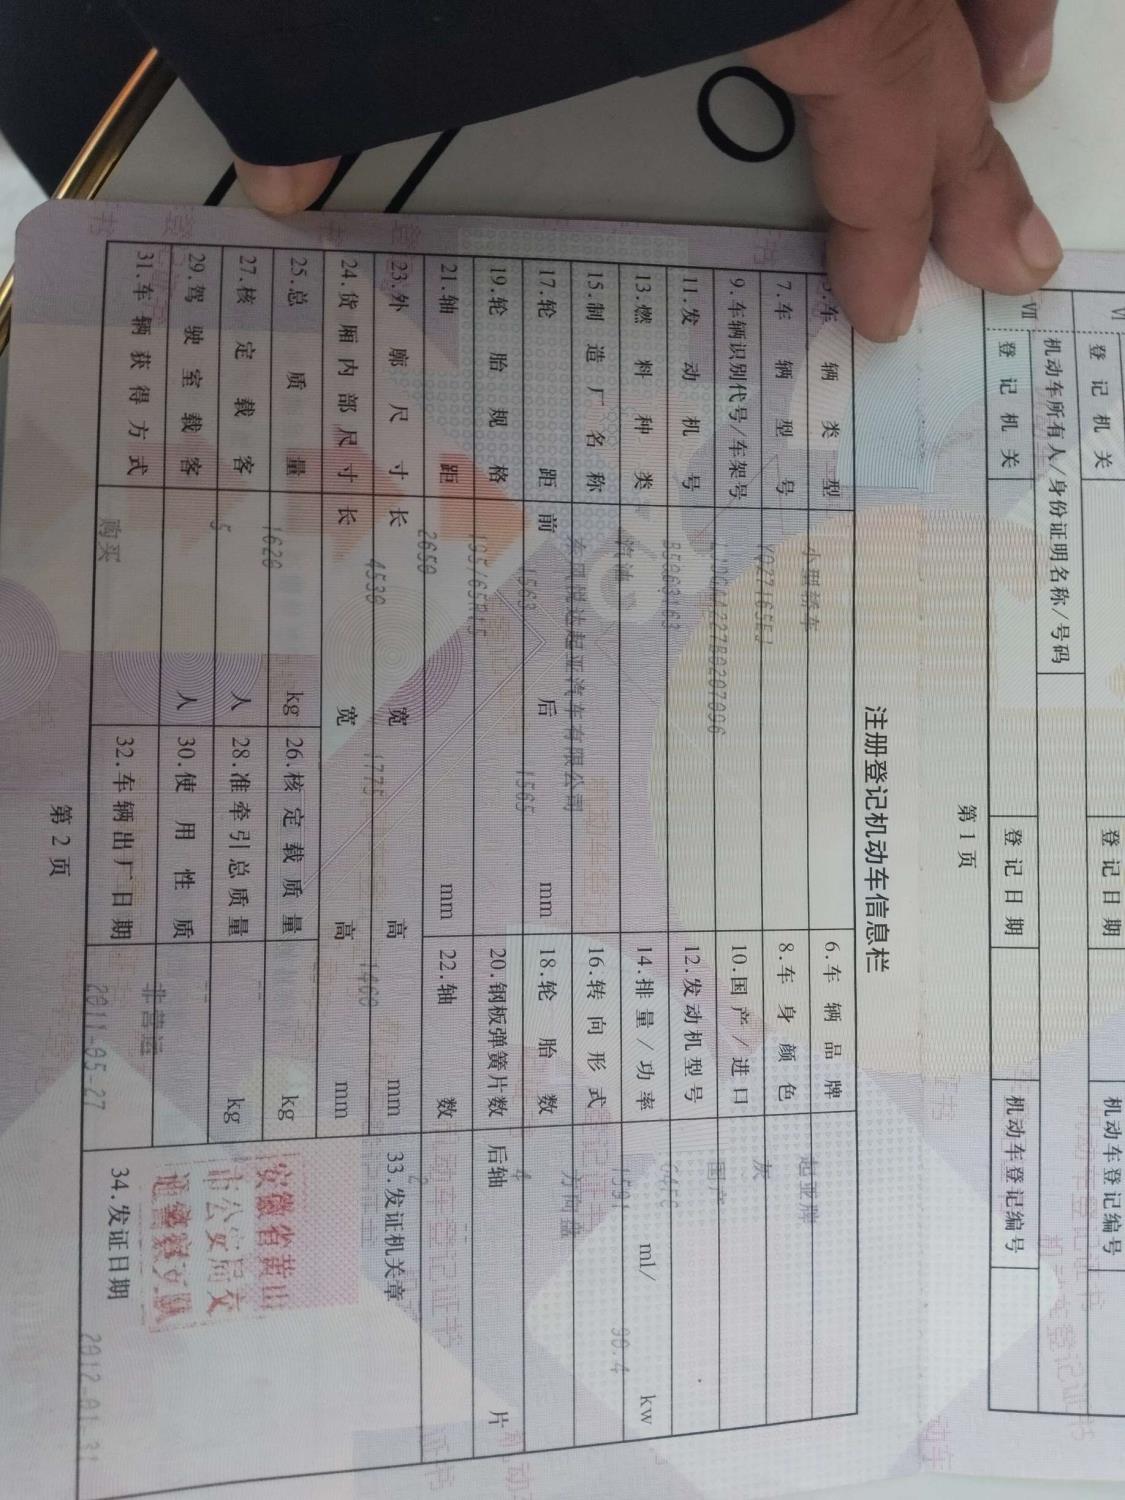 登记机关
登记日期
机动车登记编号
Ⅶ 机动车所有人/身份证明名称/号码
登记机关
登记日期
机动车登记编号
第1页
注册登记机动车信息栏
5.车辆类型 小型轿车 6.车辆品牌 起亚牌
7.车辆型号 8.车身颜色 灰
9.车辆识别代号/车架号 10.国产/进口 国产
11.发动机号 12.发动机型号 G4FC
13.燃料种类 汽油 14.排量/功率 1591 ml/ 90.4 kw
15.制造厂名称 东风悦达起亚汽车有限公司 16.转向形式 方向盘
17.轮距 前 1563 后 1565 mm 18.轮胎数 4
19.轮胎规格 195/65R15 20.钢板弹簧片数 后轴 -- 片
21.轴距 2650 mm 22.轴数 2
23.外廓尺寸 长 4530 宽 1775 高 1460 mm 33.发证机关章
24.货厢内部尺寸 长 宽 高 mm
25.总质量 1620 kg 26.核定载质量 kg
27.核定载客 5 人 28.准牵引总质量 -- kg
29.驾驶室载客 人 30.使用性质 非营运
31.车辆获得方式 购买 32.车辆出厂日期 2011-05-27 34.发证日期 2012-01-31
安徽省黄山
市公安局交
通警察支队
第2页